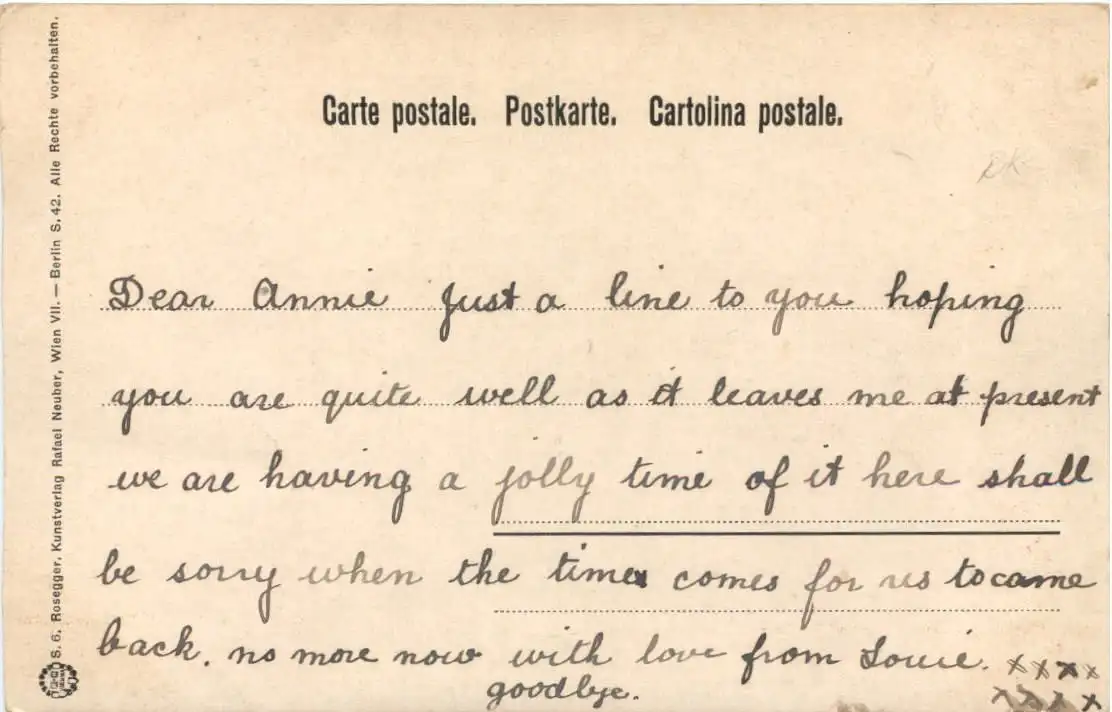 Carte postale. Postkarte. Cartolina postale.
Dear Annie Just a line to you hoping
you are quite well as it leaves me at present
we are having a jolly time of it here shall
be sorry when the times comes for us to came
back. no more now with love from Louie. xxxx
goodbye. xxxx
S. 6. Rosegger, Kunstverlag Rafael Neuber, Wien VII. — Berlin S. 42. Alle Rechte vorbehalten.